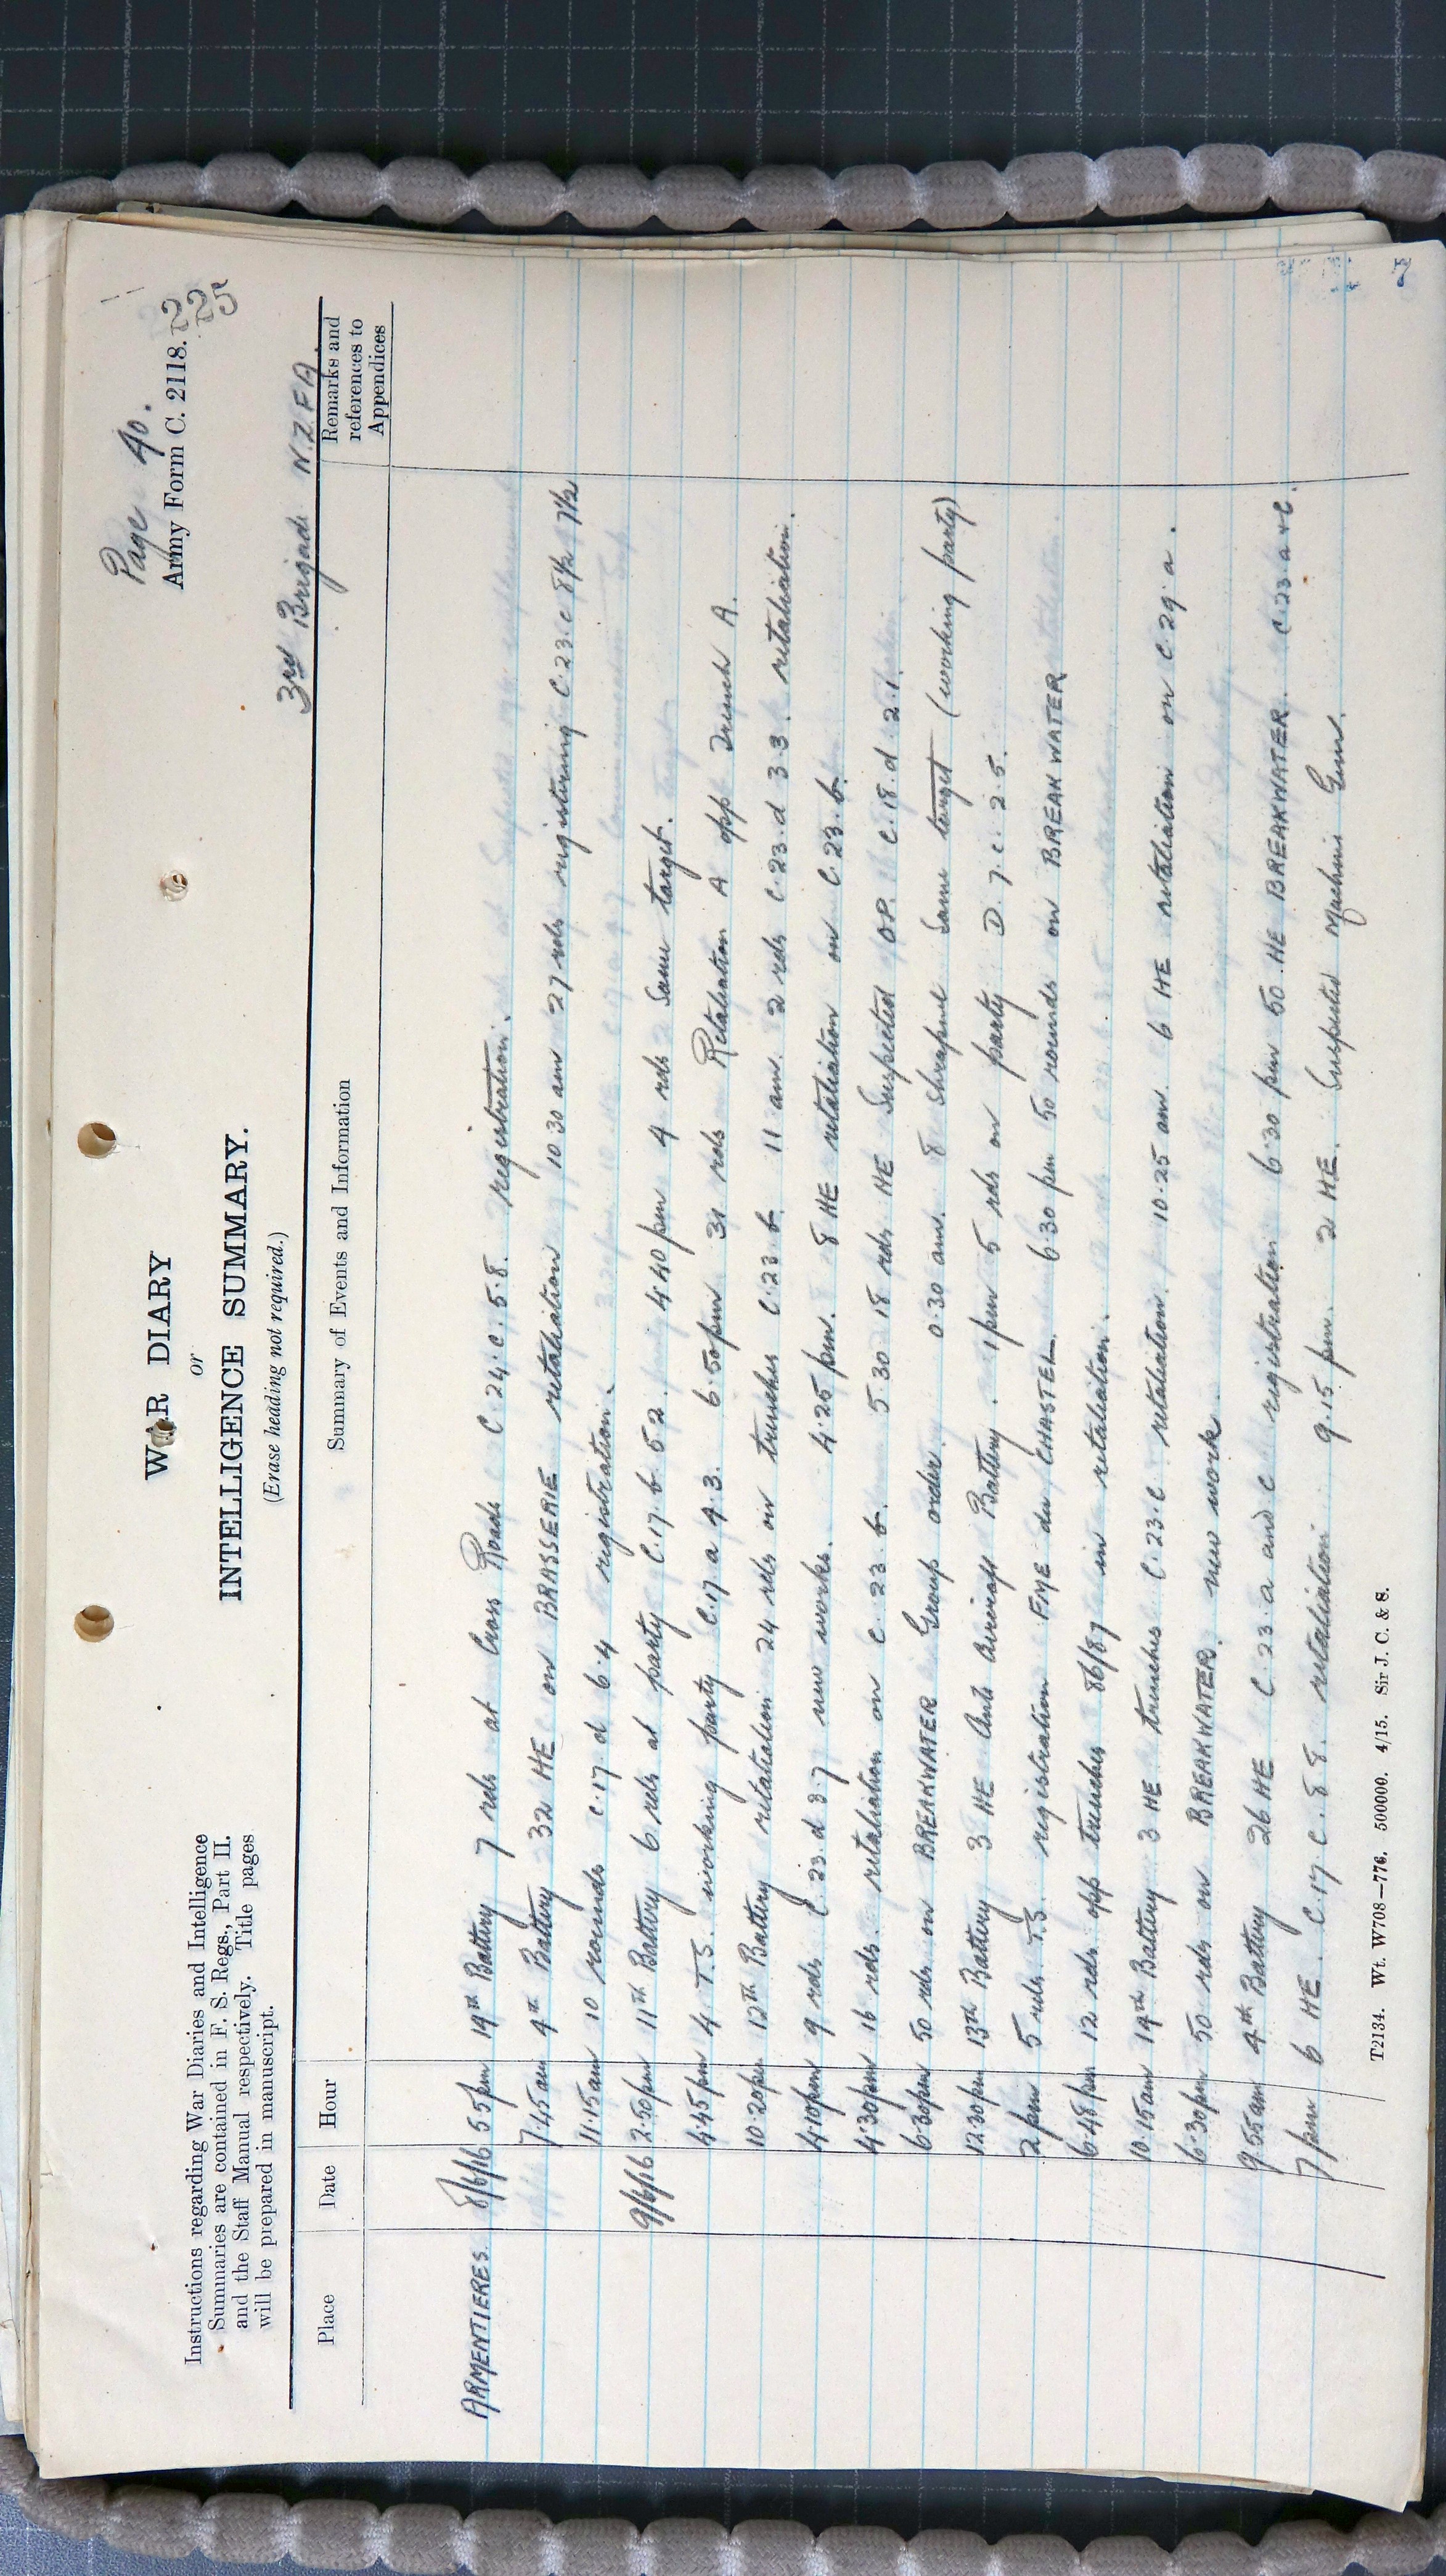 Page 40.
Army Form C. 2118.
225
WAR DIARY
or
INTELLIGENCE SUMMARY.
(Erase heading not required.)
3rd Brigade N.Z.F.A.
Instructions regarding War Diaries and Intelligence
Summaries are contained in F. S. Regs., Part II.
and the Staff Manual respectively. Title pages
will be prepared in manuscript.
Place Date Hour Summary of Events and Information Remarks and references to Appendices
ARMENTIERES 8/6/16 5 5 pm 19th Battery 7 rds at Cross Roads C.24.c.5.8. registration.
7.45 am 4th Battery 32 HE on BRASSERIE retaliation 10 30 am 27 rds registering C.23.c 8½ 7½
11.15 am 10 rounds C.17 d 6.4 registration.
9/6/16 2.50pm 11th Battery 6 rds at party C.17.b.5.2. 4.40 pm 4 rds Same target.
4.45 pm 4 T.S. working party C.17 a 4.3. 6.50pm 31 rds Retaliation A opp Trench A.
10.20pm 12th Battery retaliation 24 rds on trenches C.23 b 11 am. 2 rds C.23.d 3.3. retaliation.
4.10pm 9 rds C.23.d 3.7 new works. 4.25 pm. 8 HE retaliation on C.23.b.
4.30pm 16 rds. retaliation on C.23 b. 5.30 18 rds HE Suspected O.P. C.18.d 2.1.
6.30pm 50 rds on BREAKWATER Group order. 0.30 am. 8 shrapnel Same target (working party)
12.30pm 13th Battery 3 HE Anti Aircraft Battery. 1 pm 5 rds on party D.7.c.2.5.
2 pm 5 rds. T.S. registration FME du CHASTEL. 6.30 pm 50 rounds on BREAKWATER
6.48 pm 12 rds. opp trenches 86/87 in retaliation.
10.15am 19th Battery 3 HE trenches C.23.c retaliation. 10.25 am. 6 HE retaliation on C.29.a.
6.30pm 50 rds on BREAKWATER. new work.
9.55am 4th Battery 26 HE C.23.a and c registration 6.30 pm 50 HE BREAKWATER. C.23 a + c.
7 pm 6 HE. C.17.c.8.8. retaliation. 9.15 pm. 2 HE. Suspected Machine Gun.
T2134. Wt. W708—776. 500000. 4/15. Sir J. C. & S.
7